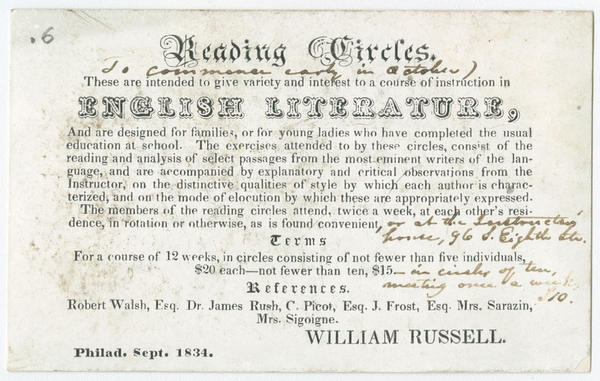 .6
Reading Circles.
To commence early in October)
These are intended to give variety and interest to a course of instruction in
ENGLISH LITERATURE,
And are designed for families, or for young ladies who have completed the usual
education at school. The exercises attended to by these circles, consist of the
reading and analysis of select passages from the most eminent writers of the lan-
guage, and are accompanied by explanatory and critical observations from the
Instructor, on the distinctive qualities of style by which each author is charac-
terized, and on the mode of elocution by which these are appropriately expressed.
The members of the reading circles attend, twice a week, at each other's resi-
dence, in rotation or otherwise, as is found convenient, or at the Instructor's
house, 96 S. Eighth Str.
Terms
For a course of 12 weeks, in circles consisting of not fewer than five individuals,
$20 each—not fewer than ten, $15.—in circles of ten,
meeting once a week,
$10.
References.
Robert Walsh, Esq. Dr. James Rush, C. Picot, Esq. J. Frost, Esq. Mrs. Sarazin,
Mrs. Sigoigne.
WILLIAM RUSSELL.
Philad. Sept. 1834.